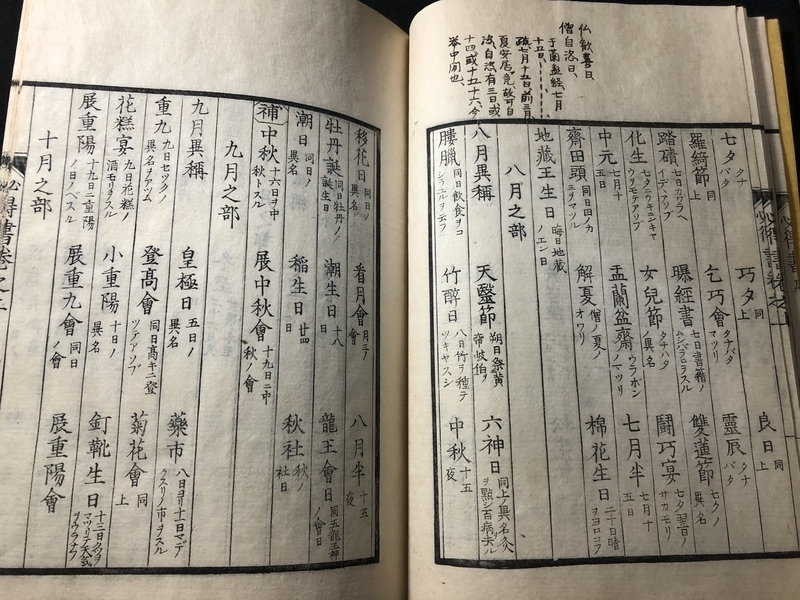 仏歓喜日、
僧自恣日、
于蘭盆経七月
十五日、
疏七月十五日前三月
夏安居竟故可自
恣自恣有三日或
十四或十五十六、今
挙中間也、
七夕 タナバタ 巧夕 同 良日 同上
羅綺節 同上 乞巧會 タナバタマツリ 靈辰 タナバタ
踏磧 七日カワラヘイデアソブ 曝經書 七日書籍ノムシバラヒヲスル 雙蓮節 七夕ノ異名
化生 七夕ニウキニンギャウヲモテアソブ 女兒節 タナバタノ異名 鬪巧宴 七夕翌日ノサカモリ
中元 七月十五日 盂蘭盆齋 ウラボンノマツリ 七月半 七月十五日
齋田頭 同日田カミヲマツル 解夏 僧ノ夏ノオワリ 棉花生日 二十日晴ヲヨロコブ
地藏王生日 晦日地藏ノエン日
八月之部
八月異稱 天醫節 朔日祭黄帝岐伯ヲ 六神日 同上ノ異名灸ヲ點シ百病
膢臘 同日飲食ヲコシラエルヲ云フ 竹醉日 八日竹ヲ種テツキヤスシ 中秋 十五夜
移花日 同日ノ異名 看月會 八月半 十五夜
牡丹誕 同日牡丹ノ誕生日 潮生日 十八日 龍王會日 同五龍王神ノ會日
潮日 同日ノ異名 稲生日 廿四日 秋社 秋ノ社日
補 中秋 十六日ヲ中秋トスル 展中秋會 十九日ニ中秋ノ會
九月之部
九月異稱 皇極日 五日ノ異名 藥市 八日ヨリ十一日マデクスリノ市ヲスル
重九 九日セックノ異名ヲアツム 登高會 同日高キニ登ツテアソブ 菊花會 同上
花糕宴 九日花糕ノ酒モリヲスル 小重陽 十日ノ異名 釘靴生日 十三日クツヲマツリテ天氣ヲウラナフ
展重陽 十九日ニ重陽ノ日ヲノベスル 展重九會 同日ノ會 展重陽會
十月之部